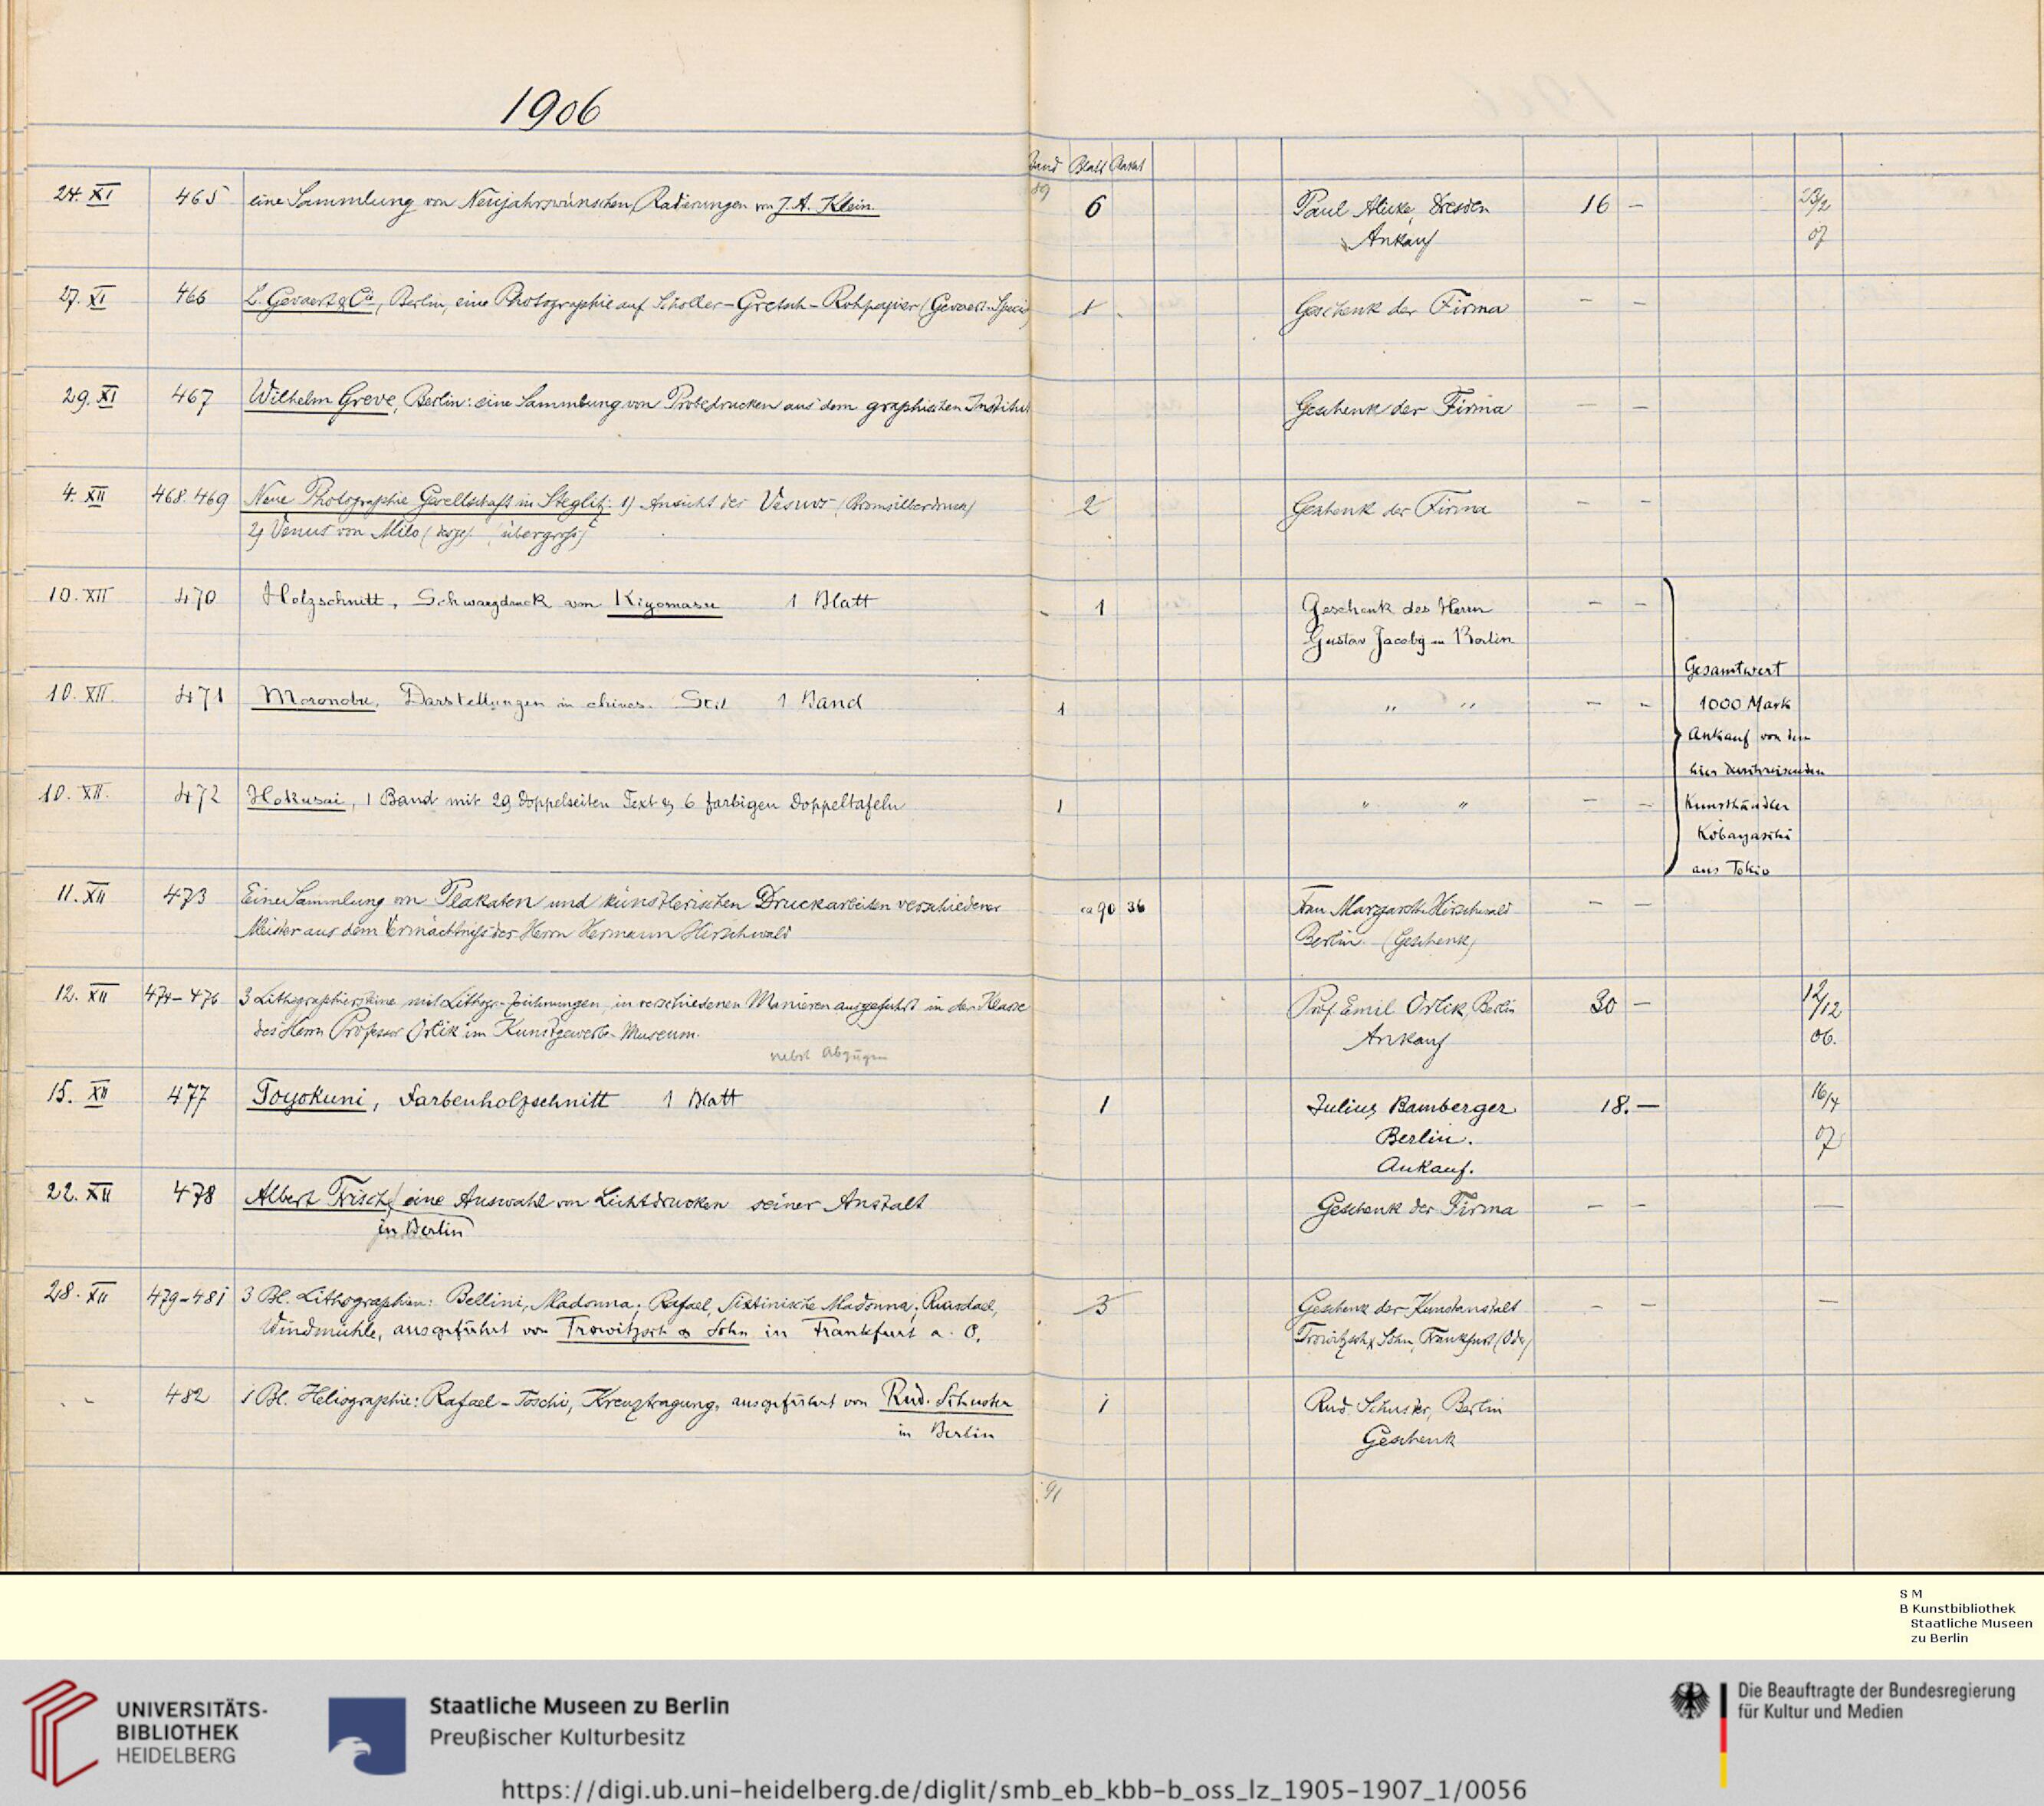 1906
Band Blatt Plakat
89
24. XI 465 eine Sammlung von Neujahrswünschen, Radierungen von J. A. Klein. 6 Paul Alicke, Dresden 16 — 23/2
Ankauf 07
27. XI 466 L. Gevaert & Cie, Berlin, eine Photographie auf Schoeller-Gretsch-Rohpapier (Gevaert- 1 Geschenk der Firma — —
29. XI 467 Wilhelm Greve, Berlin: eine Sammlung von Probedrucken aus dem graphischen Institut Geschenk der Firma — —
4. XII 468. 469 Neue Photographie Gesellschaft in Steglitz: 1) Ansicht des Vesuvs (Bromsilberdruck) 2 Geschenk der Firma — —
2) Venus von Milo (desgl.) (übergross)
10. XII 470 Holzschnitt, Schwarzdruck von Kiyomasu 1 Blatt 1 Geschenk des Herrn — —
Gustav Jacoby in Berlin
Gesamtwert
10. XII. 471 Moronobu, Darstellungen in chines. Stil 1 Band 1 " " — — 1000 Mark
Ankauf von dem
hier durchreisenden
10. XII. 472 Hokusai, 1 Band mit 29 Doppelseiten Text & 6 farbigen Doppeltafeln 1 " " — — Kunsthändler
Kobayaschi
aus Tokio
11. XII 473 Eine Sammlung von Plakaten und künstlerischen Druckarbeiten verschiedener ca 90 36 Frau Margarethe Hirschwald — —
Meister aus dem Vermächtniß des Herrn Hermann Hirschwald Berlin. (Geschenk)
12. XII 474–476 3 Lithographiersteine mit Lithogr.-Zeichnungen, in verschiedenen Manieren ausgeführt in der Klasse Prof. Emil Orlik, Berlin 30 — 12/12
des Herrn Professor Orlik im Kunstgewerbe-Museum. Ankauf 06.
nebst Abzügen
15. XII 477 Toyokuni, Farbenholzschnitt 1 Blatt 1 Julius Bamberger 18. — 16/4
Berlin. 07
Ankauf.
22. XII 478 Albert Frisch, eine Auswahl von Lichtdrucken seiner Anstalt Geschenk der Firma — — —
in Berlin
28. XII 479–481 3 Bl. Lithographien: Bellini, Madonna; Rafael, Sixtinische Madonna; Ruisdael, 3 Geschenk der Kunstanstalt — — —
Windmühle, ausgeführt von Trowitzsch & Sohn in Frankfurt a. O. Trowitzsch & Sohn, Frankfurt (Oder)
482 1 Bl. Heliographie: Rafael-Toschi, Kreuztragung, ausgeführt von Rud. Schuster 1 Rud. Schuster, Berlin
in Berlin Geschenk
91
S M
B Kunstbibliothek
Staatliche Museen
zu Berlin
UNIVERSITÄTS-
BIBLIOTHEK
HEIDELBERG
Staatliche Museen zu Berlin
Preußischer Kulturbesitz
Die Beauftragte der Bundesregierung
für Kultur und Medien
https://digi.ub.uni-heidelberg.de/diglit/smb_eb_kbb-b_oss_lz_1905-1907_1/0056